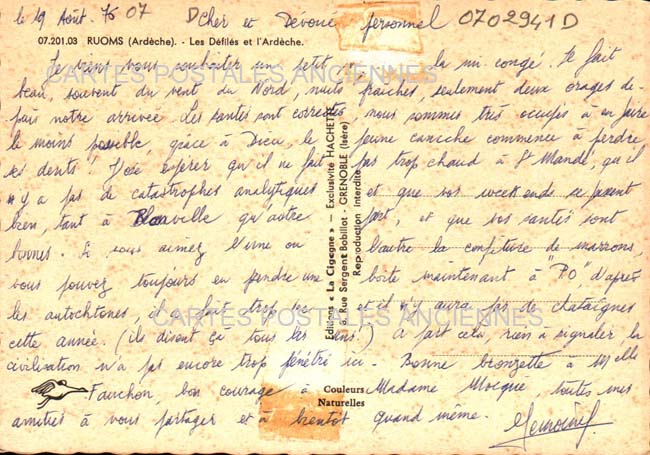 le 19 Août 75 07 Cher et Dévoué personnel 0702941D
07.201.03 RUOMS (Ardèche). - Les Défilés et l'Ardèche.
Je viens vous souhaiter un petit la mi-congé. Il fait
CARTES POSTALES ANCIENNES
beau, souvent du vent du Nord, nuits fraîches, seulement deux orages de-
puis notre arrivée. Les santés sont correctes, nous sommes très occupés à en faire
le moins possible, grâce à Dieu, le jeune caniche commence à perdre
ses dents! J'ose espérer qu'il ne fait pas trop chaud à St Mandé, qu'il
n'y a pas de catastrophes analytiques et que vos week ends se passent
bien, tant à Blonville qu'autre part, et que vos santés sont
bonnes. Si vous aimez l'une ou l'autre la confiture de marrons,
vous pouvez toujours en prendre une boîte maintenant à "PO", d'après
les autochtones, il fait trop sec et il n'y aura pas de chataîgnes
CARTES POSTALES ANCIENNES
cette année. (ils disent ça tous les ans!) A part cela, rien à signaler, la
civilisation n'a pas encore trop pénétré ici. Bonne bronzette à Melle
Fauchon, bon courage à Madame Mocque, toutes mes
amitiés à vous partager et à bientôt quand même.
Editions « La Cigogne » - Exclusivité HACHETTE
5, Rue Sergent Bobillot - GRENOBLE (Isère)
Reproduction interdite
Couleurs
Naturelles